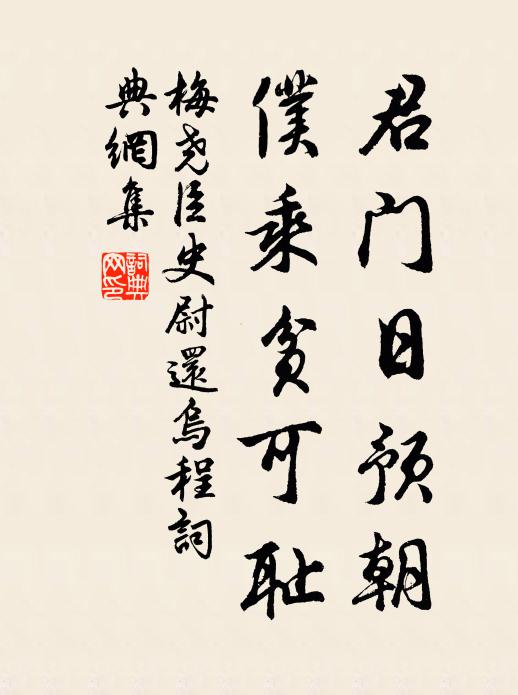 君门日预朝
僕乘贫可耻
梅尧臣史尉還烏程詞
典網集
詞典网印